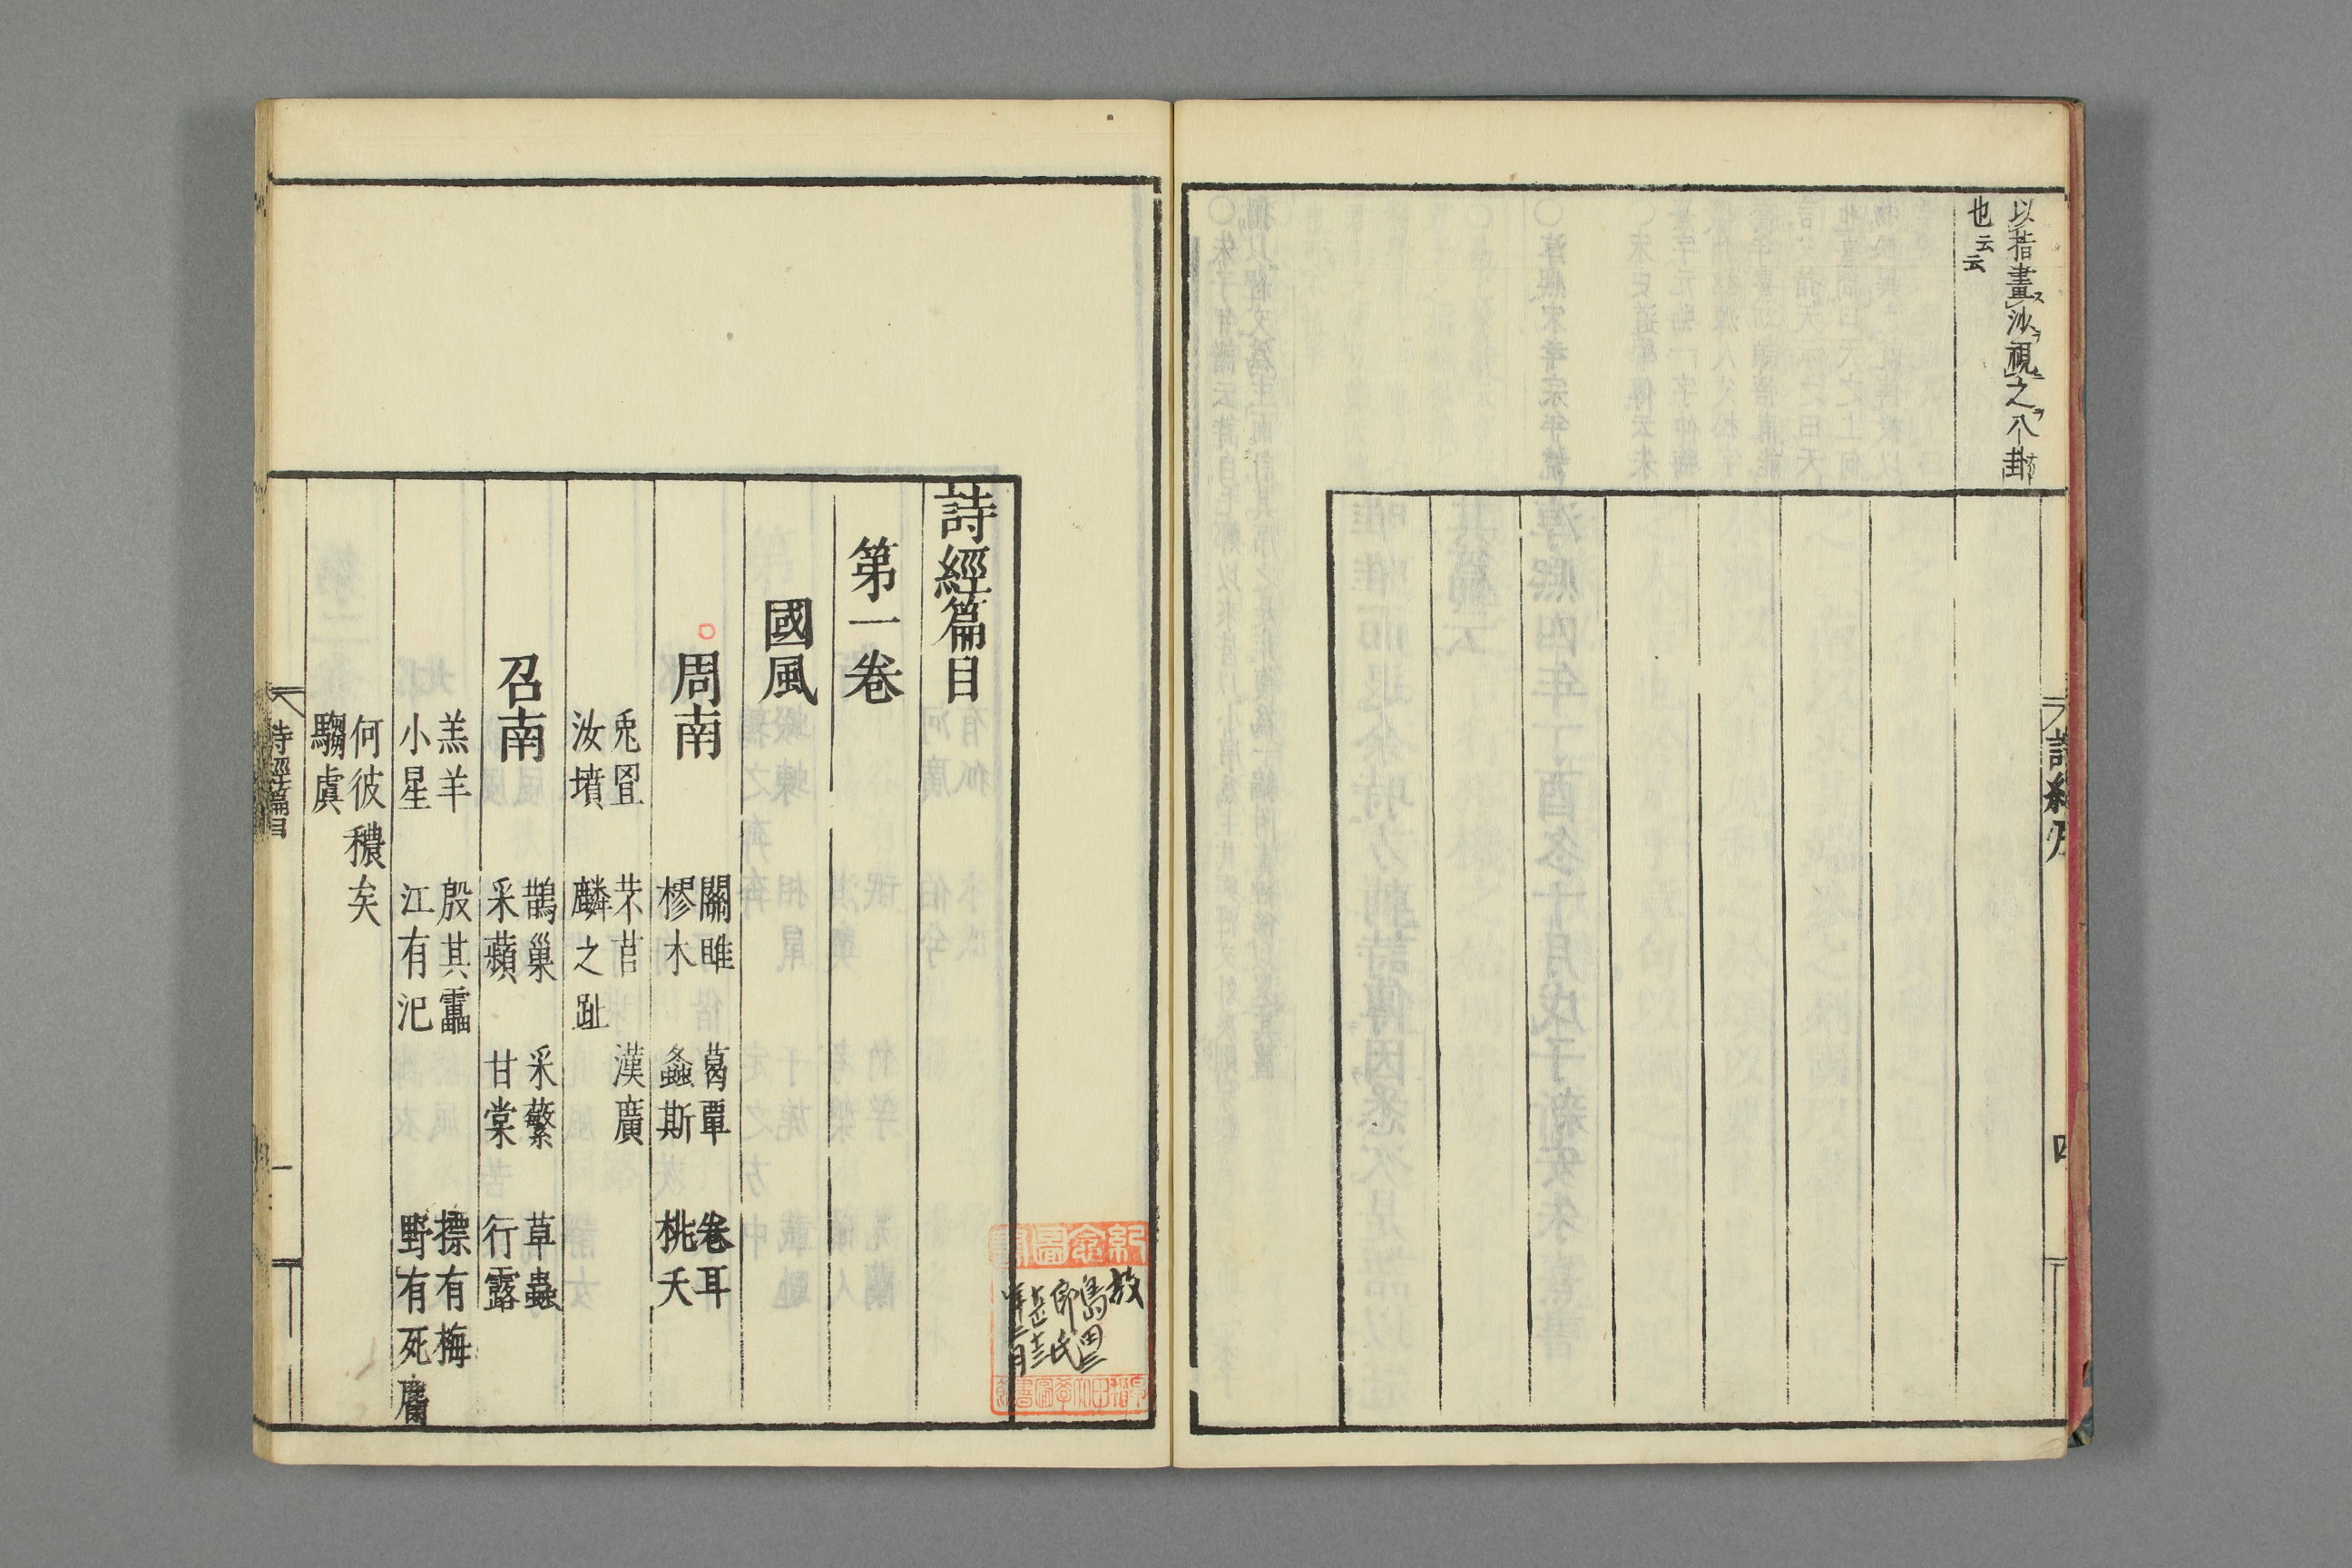 以指畫ス沙ヲ視ニ之ヲ八卦
也云云
詩經序
四
詩經篇目
第一卷
國風
○周南
關雎 葛覃 卷耳
樛木 螽斯 桃夭
兎罝 芣苢 漢廣
汝墳 麟之趾
召南
鵲巢 采蘩 草蟲
采蘋 甘棠 行露
羔羊 殷其靁 摽有梅
小星 江有汜 野有死麕
何彼穠矣
騶虞
詩經篇目
一
故
島田三
郎氏